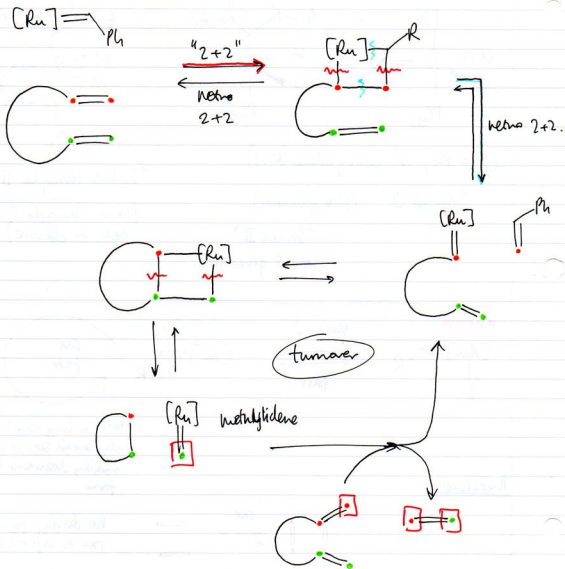 [Ru]
Ph
"2+2"
retro
2+2
[Ru]
R
retro 2+2.
[Ru]
Ph
[Ru]
turnover
[Ru]
methylidene